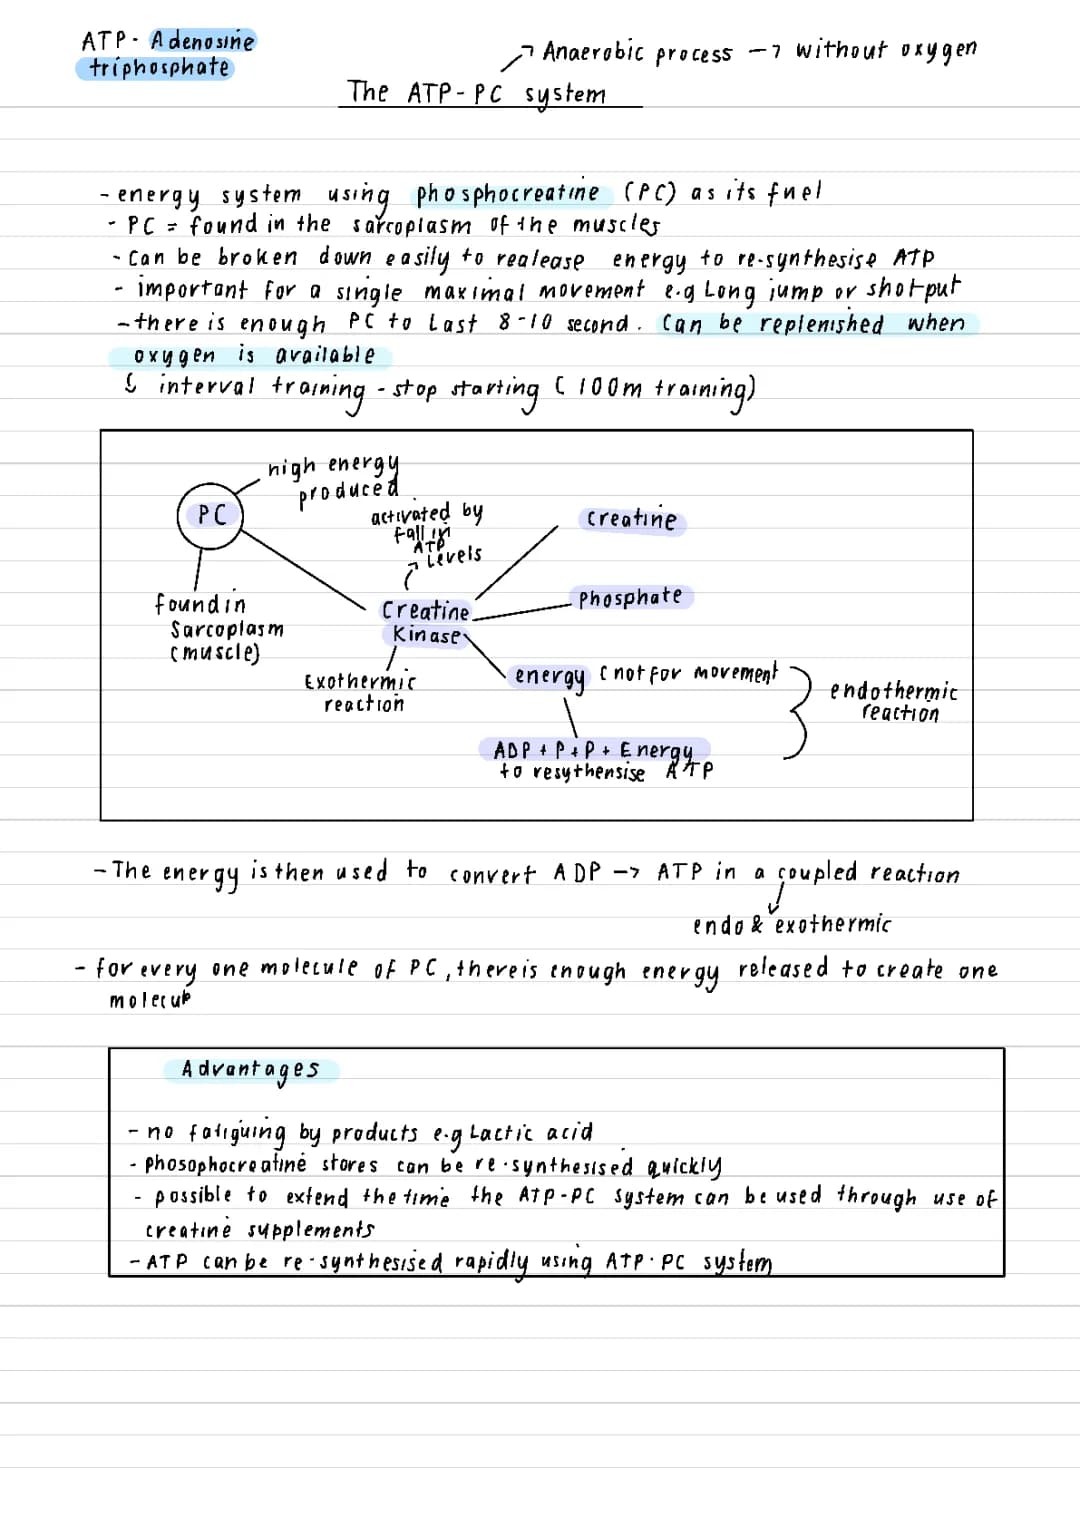 ATP - Adenosine
triphosphate
→ Anaerobic process → without oxygen
The ATP-PC system
- energy system using phosphocreatine (PC) as its fuel
- PC = found in the sarcoplasm of the muscles
- Can be broken down easily to realease energy to re-synthesise ATP
- important for a single maximal movement e.g Long jump or shot-put
- there is enough PC to Last 8-10 second. Can be replenished when
oxygen is available
↳ interval training - stop starting (100m training)
high energy
produced
PC
activated by
fall in
ATP
Levels
creatine
found in
Sarcoplasm
(muscle)
Creatine
Kinase
Phosphate
Exothermic
reaction
energy (not for movement
endothermic
reaction
ADP + P + P + Energy
to resythensise ATP
- The energy is then used to convert ADP → ATP in a coupled reaction
endo & exothermic
- for every one molecule of PC, there is enough energy released to create one
molecule
Advantages
- no fatiguing by products e.g Lactic acid
- phosophocreatine stores can be re-synthesised quickly
- possible to extend the time the ATP-PC system can be used through use of
creatine supplements
- ATP can be re-synthesised rapidly using ATP-PC system